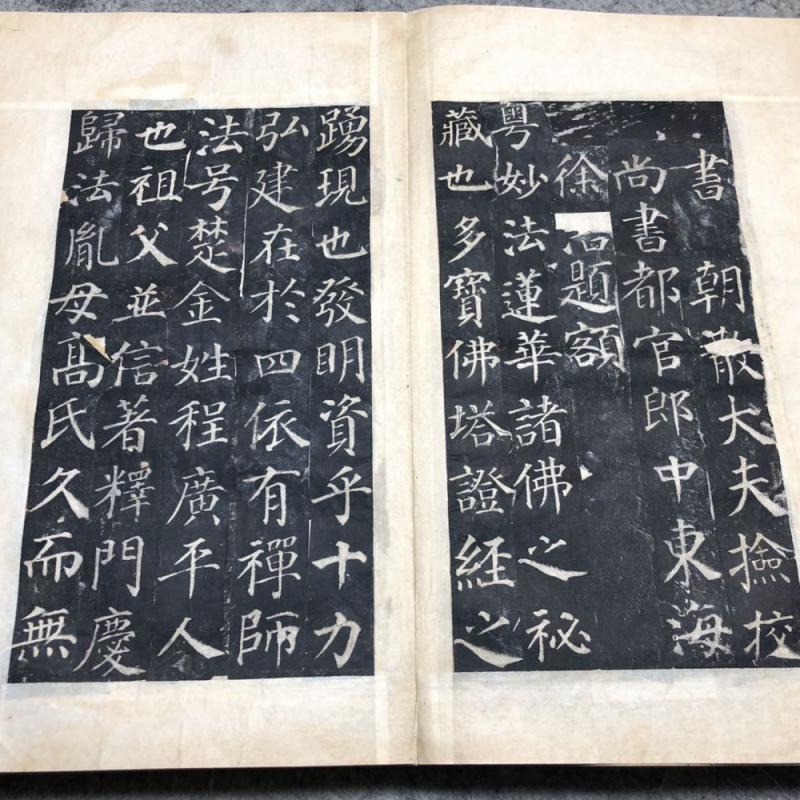 書 朝散大夫撿校
尚書都官郎中東海
徐題額
粵妙法蓮華諸佛之秘
藏也多寶佛塔證經之
踴現也發眀資乎十力
弘建在於四依有禪師
法号楚金姓程廣平人
也祖父並信著釋門慶
歸法胤母髙氏久而無